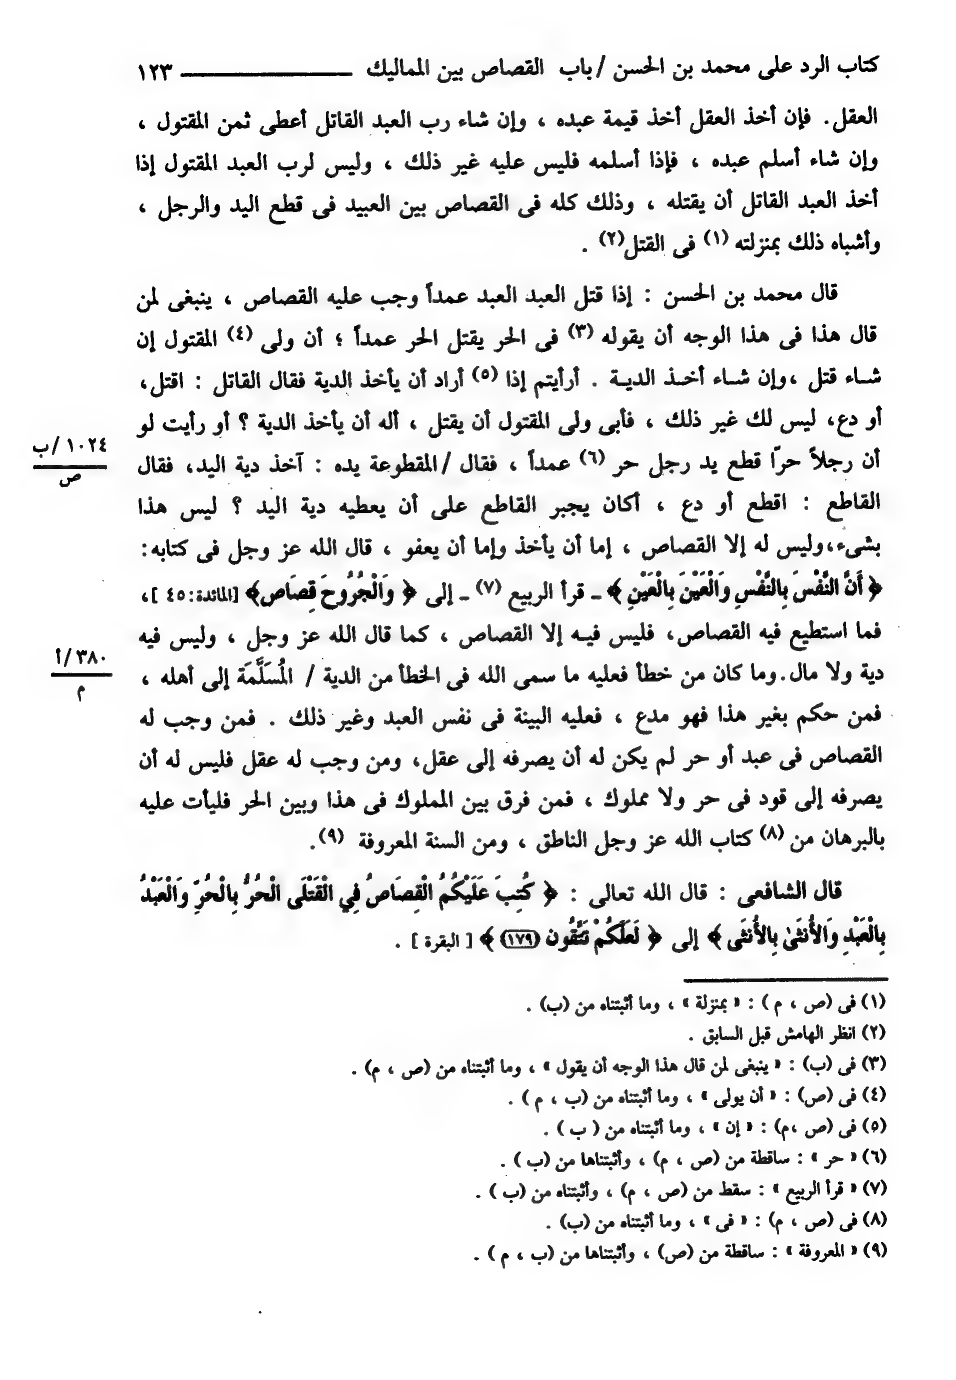 كتاب الرد على محمد بن الحسن / باب القصاص بين المماليك ــــــــــــــــ ١٢٣
العقل. فإن أخذ العقل أخذ قيمة عبده ، وإن شاء رب العبد القاتل أعطى ثمن المقتول ،
وإن شاء أسلم عبده ، فإذا أسلمه فليس عليه غير ذلك ، وليس لرب العبد المقتول إذا
أخذ العبد القاتل أن يقتله ، وذلك كله فى القصاص بين العبيد فى قطع اليد والرجل ،
وأشباه ذلك بمنزلته (١) فى القتل(٢) .
قال محمد بن الحسن : إذا قتل العبد العبد عمداً وجب عليه القصاص ، ينبغى لمن
قال هذا فى هذا الوجه أن يقوله (٣) فى الحر يقتل الحر عمداً ؛ أن ولى (٤) المقتول إن
شاء قتل ،وإن شاء أخذ الدية . أرأيتم إذا (٥) أراد أن يأخذ الدية فقال القاتل : اقتل،
أو دع، ليس لك غير ذلك ، فأبى ولى المقتول أن يقتل ، أله أن يأخذ الدية ؟ أو رأيت لو
أن رجلاً حرًا قطع يد رجل حر (٦) عمداً ، فقال / المقطوعة يده : آخذ دية اليد، فقال
١٠٢٤ /ب
ص
القاطع : اقطع أو دع ، أكان يجبر القاطع على أن يعطيه دية اليد ؟ ليس هذا
بشىء،وليس له إلا القصاص ، إما أن يأخذ وإما أن يعفو ، قال الله عز وجل فى كتابه:
﴿ أَنَّ النَّفْسَ بِالنَّفْسِ وَالْعَيْنَ بِالْعَيْنِ ﴾ ـ قرأ الربيع (٧) ـ إلى ﴿ وَالْجُرُوحَ قِصَاص﴾ [المائدة:٤٥ ]،
فما استطيع فيه القصاص، فليس فيه إلا القصاص ، كما قال الله عز وجل ، وليس فيه
دية ولا مال.وما كان من خطأ فعليه ما سمى الله فى الخطأ من الدية / المُسَلَّمَة إلى أهله ،
٣٨٠ /أ
م
فمن حكم بغير هذا فهو مدع ، فعليه البينة فى نفس العبد وغير ذلك . فمن وجب له
القصاص فى عبد أو حر لم يكن له أن يصرفه إلى عقل، ومن وجب له عقل فليس له أن
يصرفه إلى قود فى حر ولا مملوك ، فمن فرق بين المملوك فى هذا وبين الحر فليأت عليه
بالبرهان من (٨) كتاب الله عز وجل الناطق ، ومن السنة المعروفة (٩).
قال الشافعى : قال الله تعالى : ﴿ كُتِبَ عَلَيْكُمُ الْقِصَاصُ فِي الْقَتْلَى الْحُرُّ بِالْحُرِّ وَالْعَبْدُ
بِالْعَبْدِ وَالأُنثَىٰ بِالأُنثَى ﴾ إلى ﴿ لَعَلَّكُمْ تَتَّقُون (١٧٩) ﴾ [ البقرة ] .
(١) فى (ص ، م ) : « بمنزلة » ، وما أثبتناه من (ب) .
(٢) انظر الهامش قبل السابق .
(٣) فى (ب) : « ينبغى لمن قال هذا الوجه أن يقول » ، وما أثبتناه من (ص ، م) .
(٤) فى (ص) : « أن يولى » ، وما أثبتناه من (ب ، م ) .
(٥) فى (ص ،م) : « إن » ، وما أثبتناه من ( ب ) .
(٦) « حر » : ساقطة من (ص ، م) ، وأثبتناها من (ب ) .
(٧) « قرأ الربيع » : سقط من (ص ، م) ، وأثبتناه من (ب ) .
(٨) فى (ص ، م) : « فى » ، وما أثبتناه من (ب) .
(٩) « المعروفة » : ساقطة من (ص) ، وأثبتناها من (ب ، م ) .